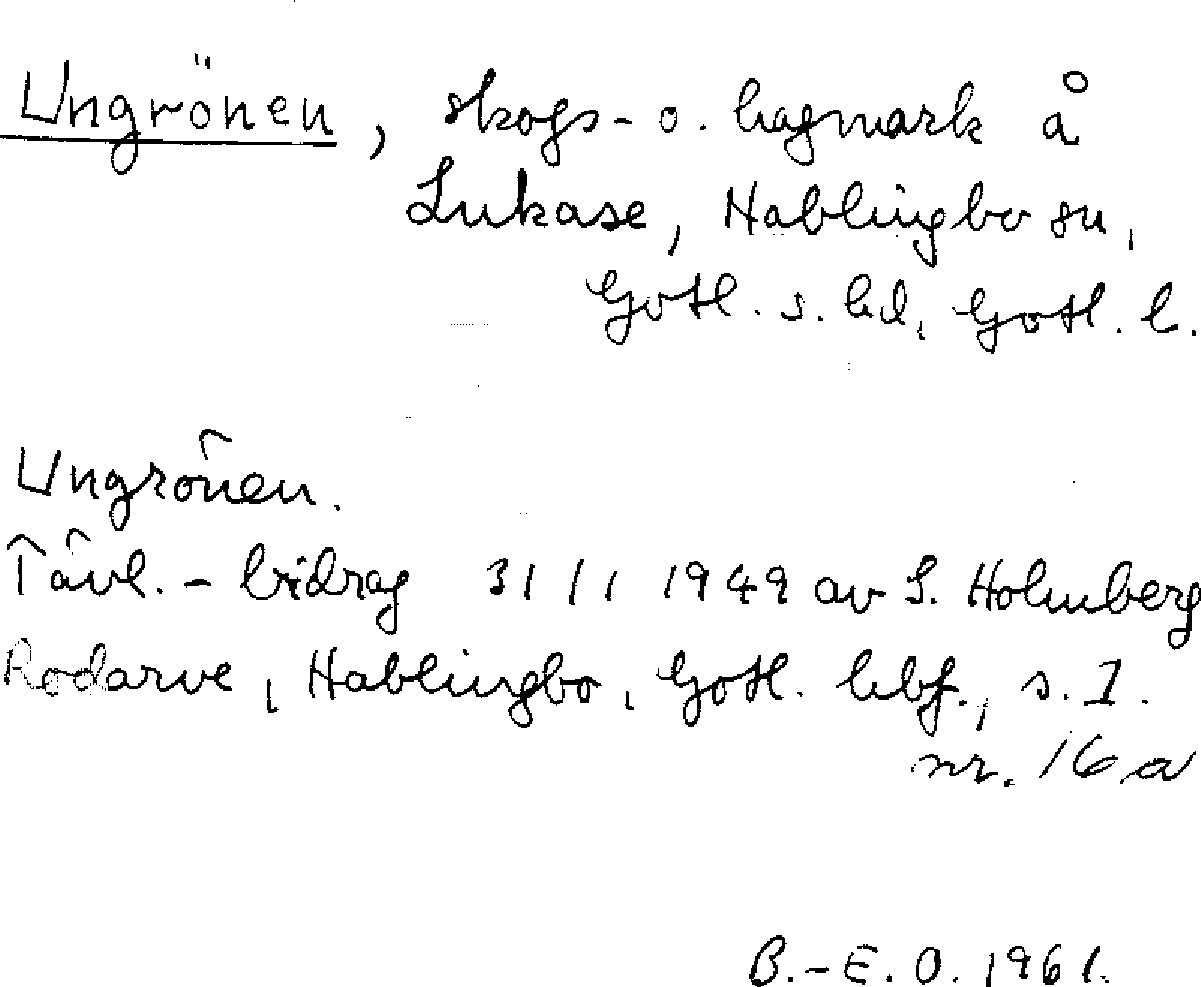 Ungrönen, skogs- o. hagmark å
Lukase, Hablingbo sn,
Gotl. s. hd, Gotl. l.
Ungrönen.
Tävl.-bidrag 31/1 1949 av S. Holmberg
Rodarve, Hablingbo, Gotl. hbf., s. 1.
nr. 16a
B.-E. O. 1961.